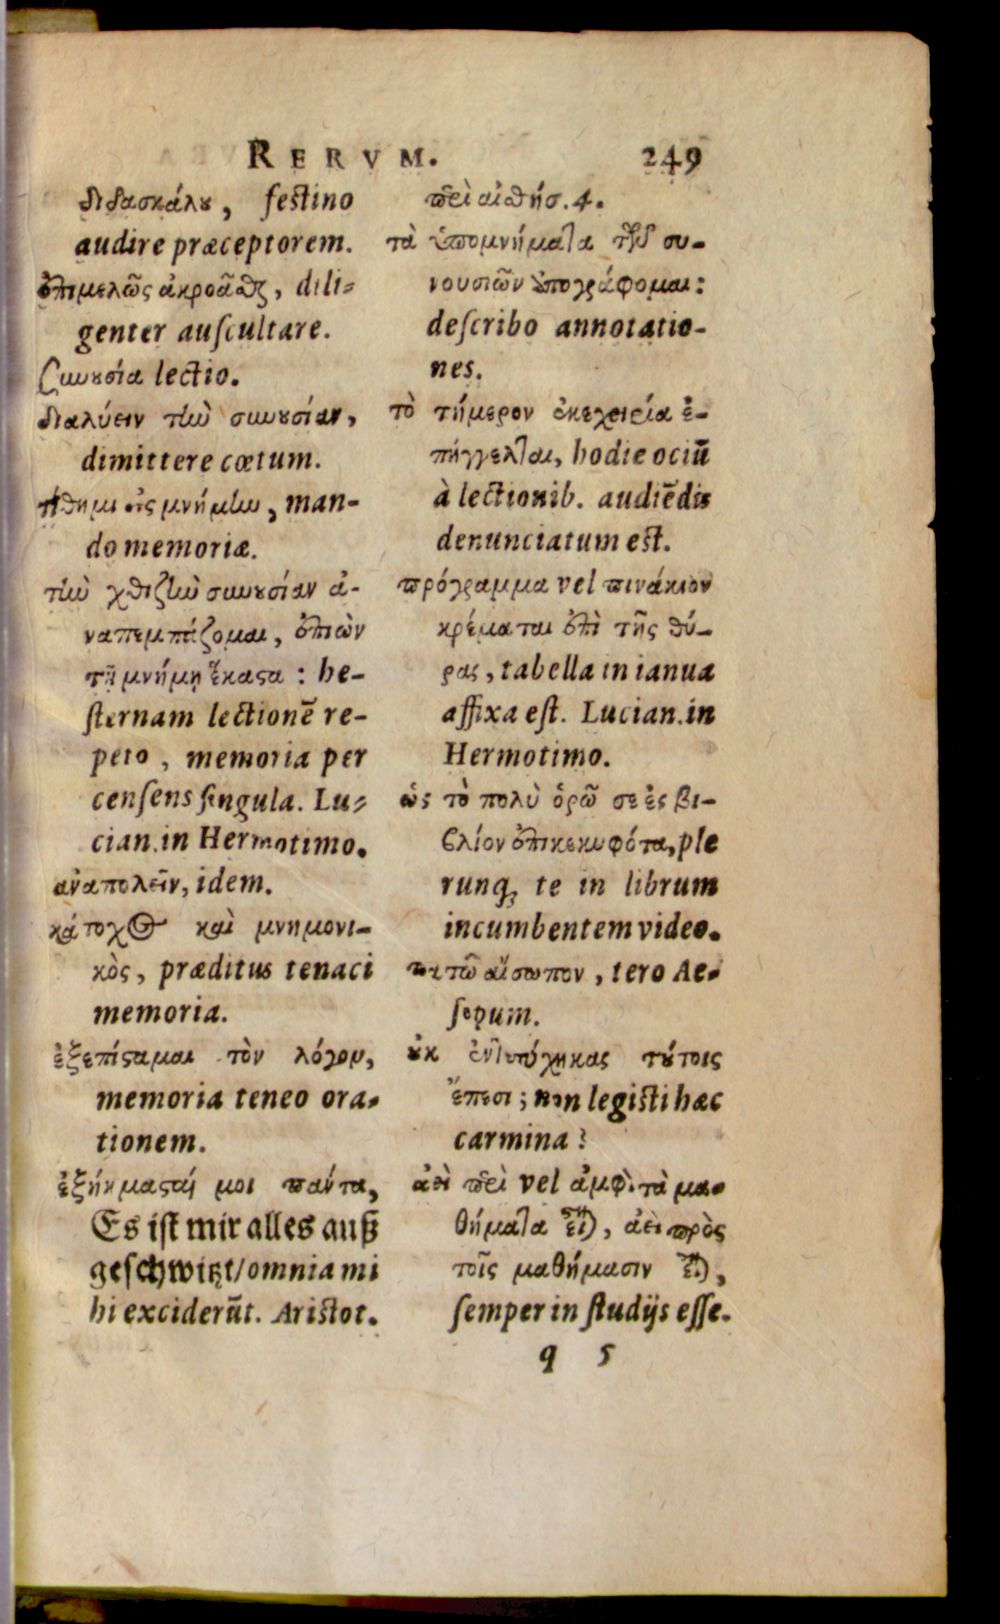 RERVM. 249
διδασκάλȣ, festino
audire præceptorem.
ἐπιμελῶς ἀκροᾶσθαι, dili-
genter auſcultare.
συνȣσία lectio.
διαλύειν τὴν συνȣσίαν,
dimittere cœtum.
τίθημι εἰς μνήμην, man-
do memoriæ.
τὴν χθιζὴν συνȣσίαν ἀ-
ναπεμπάζομαι, ἐπιὼν
τῇ μνήμῃ ἕκαϛα : he-
ſternam lectionē re-
peto, memoria per
cenſens ſingula. Lu-
cian.in Hermotimo.
ἀναπολεῖν, idem.
κάτοχος καὶ μνημονι-
κὸς, præditus tenaci
memoria.
ἐξεπίϛαμαι τὸν λόγον,
memoria teneo ora-
tionem.
ἐξήκμαϛαί μοι πάντα,
Es iſt mir alles auß
geſchwitzt/omnia mi
hi exciderūt. Ariſtot.
περὶ αἰσθήσ.4.
τὰ ὑπομνήματα τῶν συ-
νουσιῶν ὑπογράφομαι:
deſcribo annotatio-
nes.
τὸ τήμερον ἐκεχειρία ἐ-
πήγγελται, hodie ociū
à lectionib. audiēdis
denunciatum eſt.
πρόγραμμα vel πινάκιον
κρέμαται ἐπὶ τῆς θύ-
ρας, tabella in ianua
affixa eſt. Lucian.in
Hermotimo.
ὡς τὸ πολὺ ὁρῶ σε ἐς βι-
βλίον ἐπικεκυφότα, ple
runq; te in librum
incumbentem video.
πατῶ αἴσωπον, tero Ae-
ſopum.
ȣκ ἐντετύχηκας τȣτοις
ἔπεσι; non legiſti hæc
carmina?
ἀεὶ περὶ vel ἀμφὶ τὰ μα-
θήματα εἶναι, ἀεὶ πρὸς
τοῖς μαθήμασιν εἶναι,
ſemper in ſtudijs eſſe.
q 5